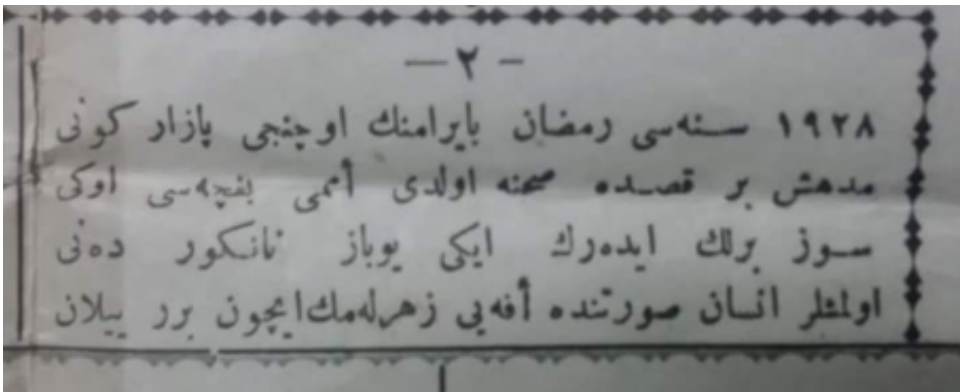 — ٢ —
١٩٢٨ سنه‌سی رمضان بایرامنك اوچنجی پازار كونی
مدهش بر قصده صحنه اولدی أممی بغچه‌سی اوكی
سوز برلك ایده‌رك ایكی یوباز نانكور ده‌نی
اولمشلر انسان صورتنده أفه‌یی زهرله‌مك ایچون برر ییلان